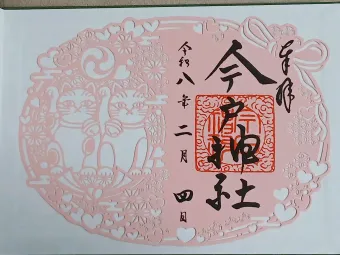 奉拝
今戸神社
令和八年二月四日